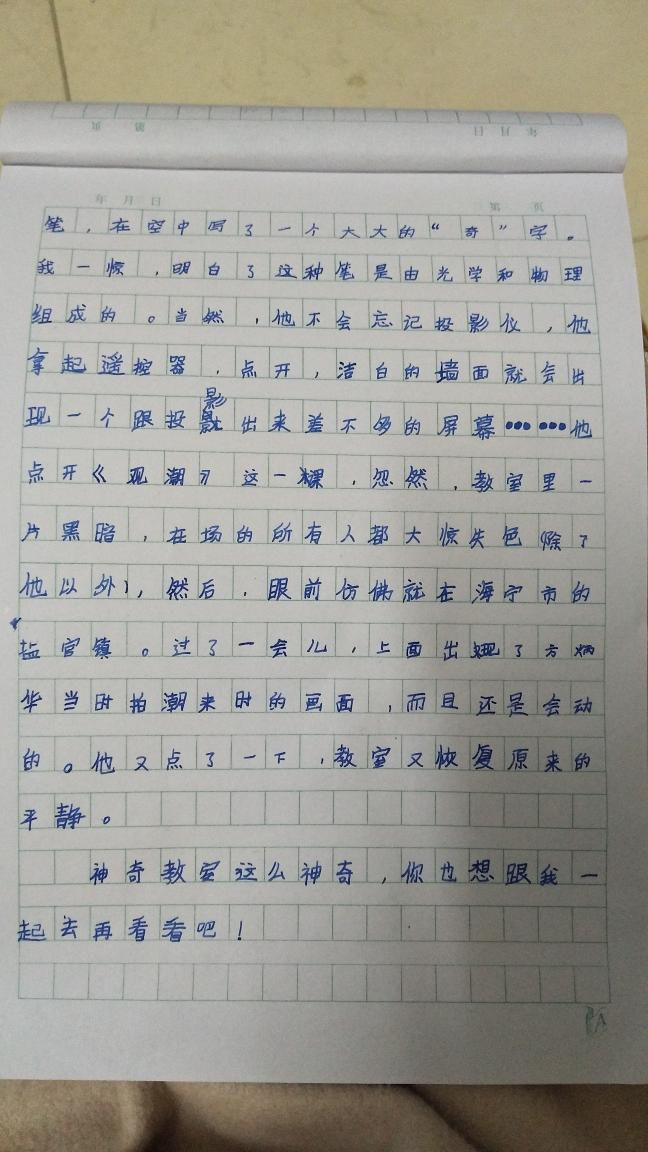 页 第 日 月 年
年 月 日 第 页
笔，在空中写了一个大大的“奇”字。
我一惊，明白了这种笔是由光学和物理
组成的。当然，他不会忘记投影仪，他
拿起遥控器，点开，洁白的墙面就会出
现一个跟投影出来差不多的屏幕……他
点开《观潮》这一课，忽然，教室里一
片黑暗，在场的所有人都大惊失色（除了
他以外），然后，眼前仿佛就在海宁市的
盐官镇。过了一会儿，上面出现了方炳
华当时拍潮来时的画面，而且还是会动
的。他又点了一下，教室又恢复原来的
平静。
神奇教室这么神奇，你也想跟我一
起去再看看吧！